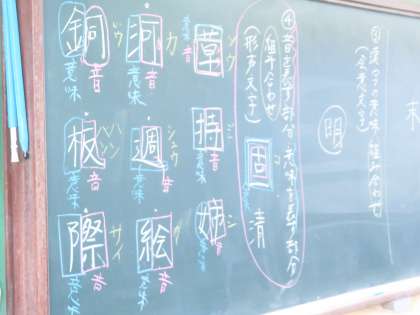 未
③漢字の意味の組み合わせ
(会意文字)
明
④音を表す部分と意味を表す部分
組み合わせ
(形声文字)
固
コ
清
草
ソウ
音
意味
持
ジ
音
意味
姉
シ
音
意味
河
カ
音
意味
週
シュウ
音
意味
絵
カイ
音
意味
銅
ドウ
音
意味
板
ハン
バン
音
意味
際
サイ
音
意味